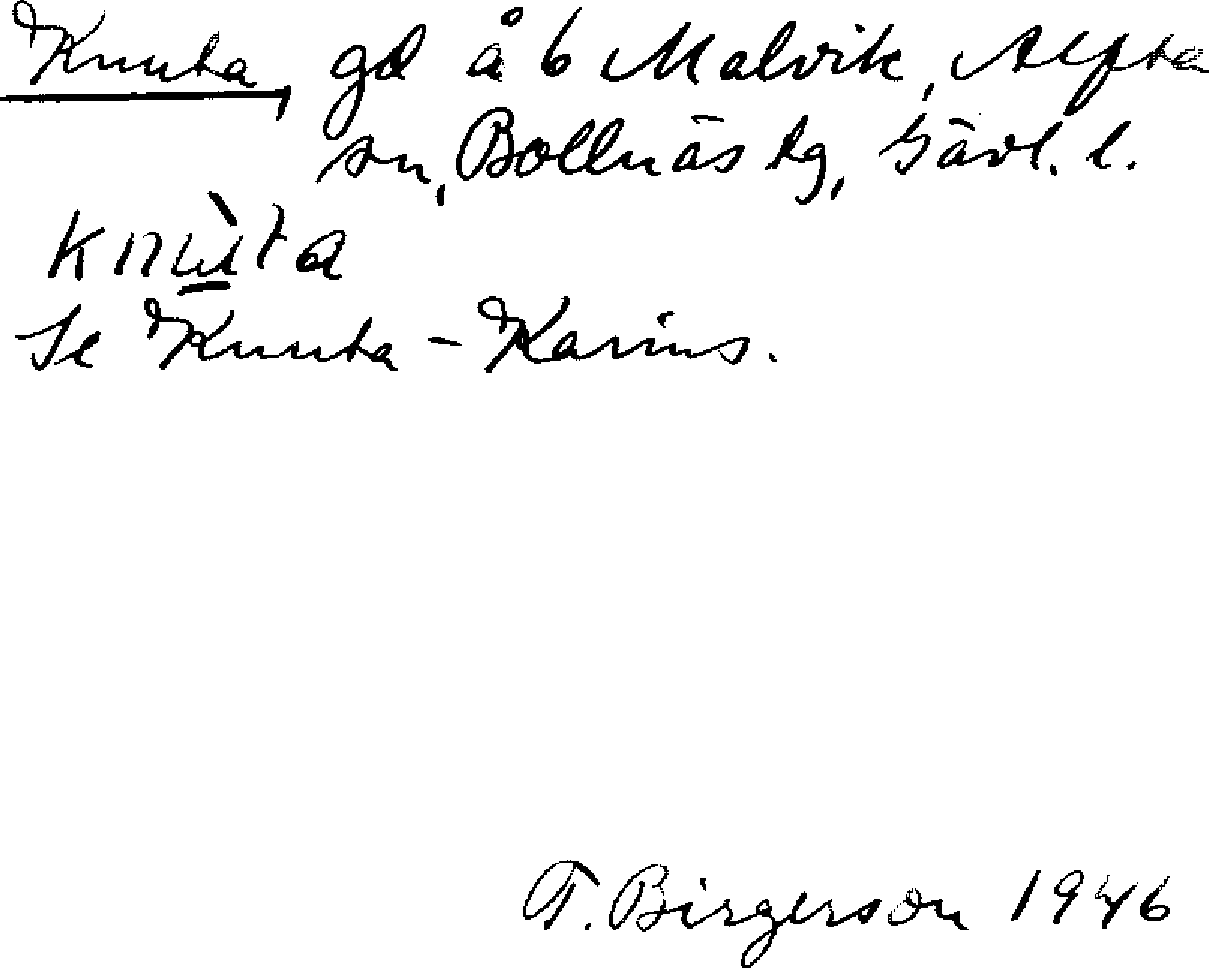 Knuta, gd å 6 Malvik, Alfta
sn, Bollnäs tg, Gävl. l.
knù̲ta
Se Knuta-Karins.
T. Birgerson 1946